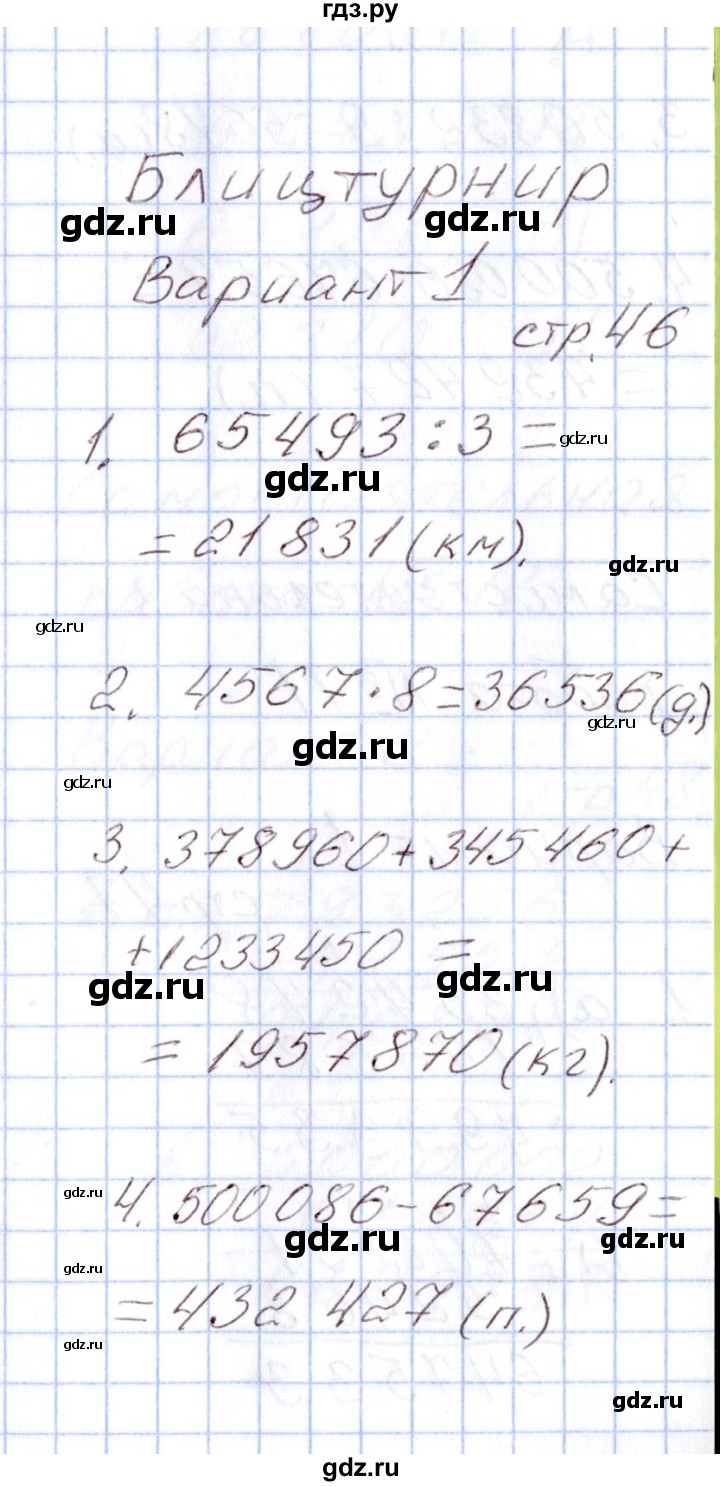 гдз.ру
Блицтурнир
gdz.ru gdz.ru
Вариант 1
стр. 46
1. 65 493 : 3 =
gdz.ru
gdz.ru
= 21 831 (км).
gdz.ru
gdz.ru
2. 4567 · 8 = 36536 (д.)
gdz.ru
gdz.ru
gdz.ru
3. 378960 + 345460 +
+ 1233450 =
gdz.ru gdz.ru
= 1957870 (кг).
gdz.ru
4. 500086 - 67659 =
gdz.ru gdz.ru
gdz.ru
= 432 427 (п.)
gdz.ru
gdz.ru
gdz.ru